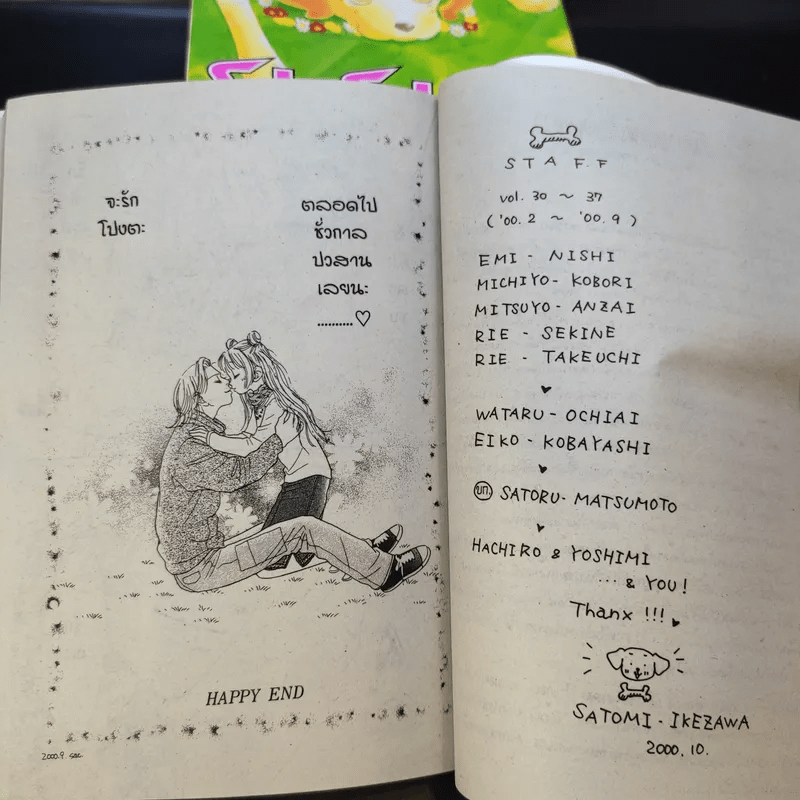 ตลอดไป
ชั่วกาล
ปวสาน
เลยนะ
..........♡
จะรัก
โปงตะ
HAPPY END
2000.9.
STAFF
vol. 30 ~ 37
('00.2 ~ '00.9)
EMI - NISHI
MICHIYO - KOBORI
MITSUYO - ANZAI
RIE - SEKINE
RIE - TAKEUCHI
WATARU - OCHIAI
EIKO - KOBAYASHI
บก. SATORU - MATSUMOTO
HACHIRO & YOSHIMI
... & YOU!
Thanx !!!
SATOMI - IKEZAWA
2000. 10.